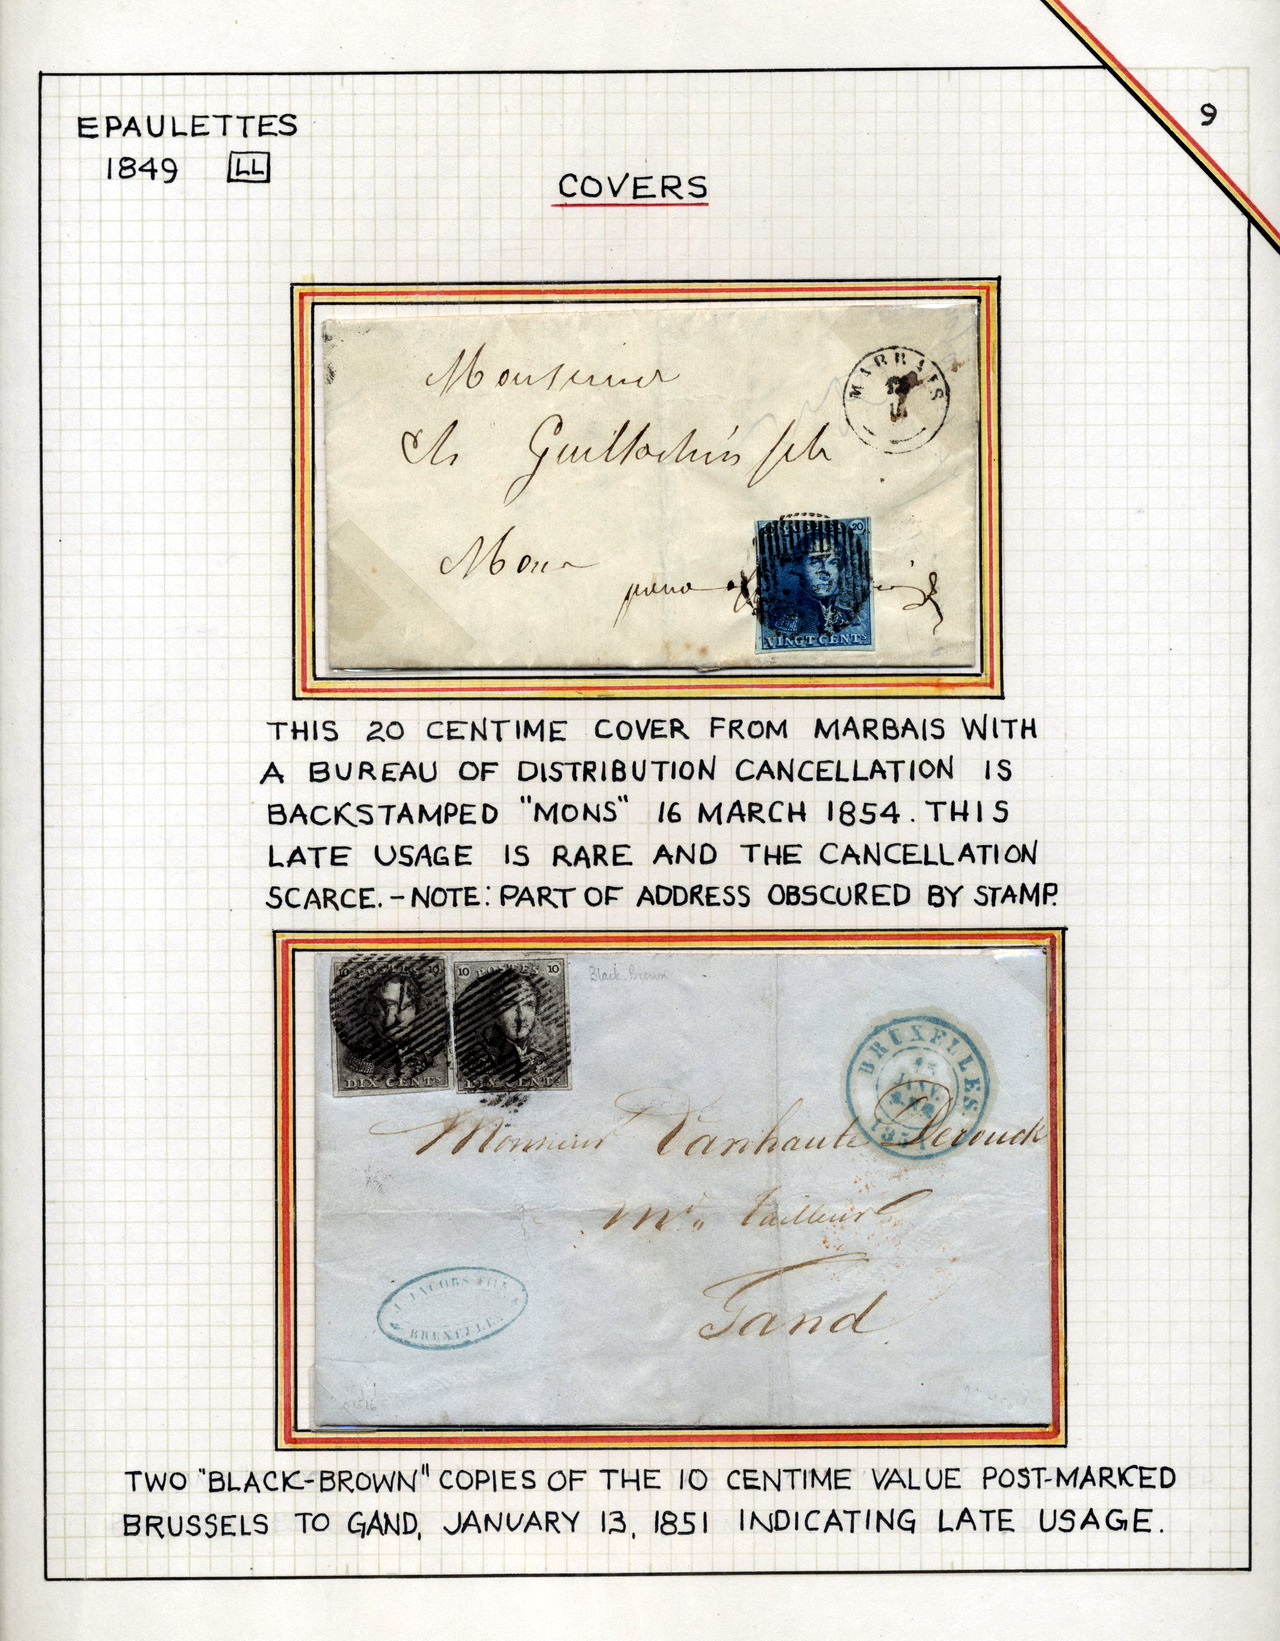 EPAULETTES
1849 LL
9
COVERS
Monsieur
MARBAIS
Guillochin fils
Mons
20
VINGT CENTS
THIS 20 CENTIME COVER FROM MARBAIS WITH
A BUREAU OF DISTRIBUTION CANCELLATION IS
BACKSTAMPED "MONS" 16 MARCH 1854. THIS
LATE USAGE IS RARE AND THE CANCELLATION
SCARCE. - NOTE: PART OF ADDRESS OBSCURED BY STAMP.
10 POSTES 10
DIX CENTS
10 POSTES 10
DIX CENTS
Black-Brown
BRUXELLES
1851
Monsieur Vanhaute Decouck
Md. Tailleur
Gand
JACOBS
BRUXELLES
TWO "BLACK-BROWN" COPIES OF THE 10 CENTIME VALUE POST-MARKED
BRUSSELS TO GAND, JANUARY 13, 1851 INDICATING LATE USAGE.